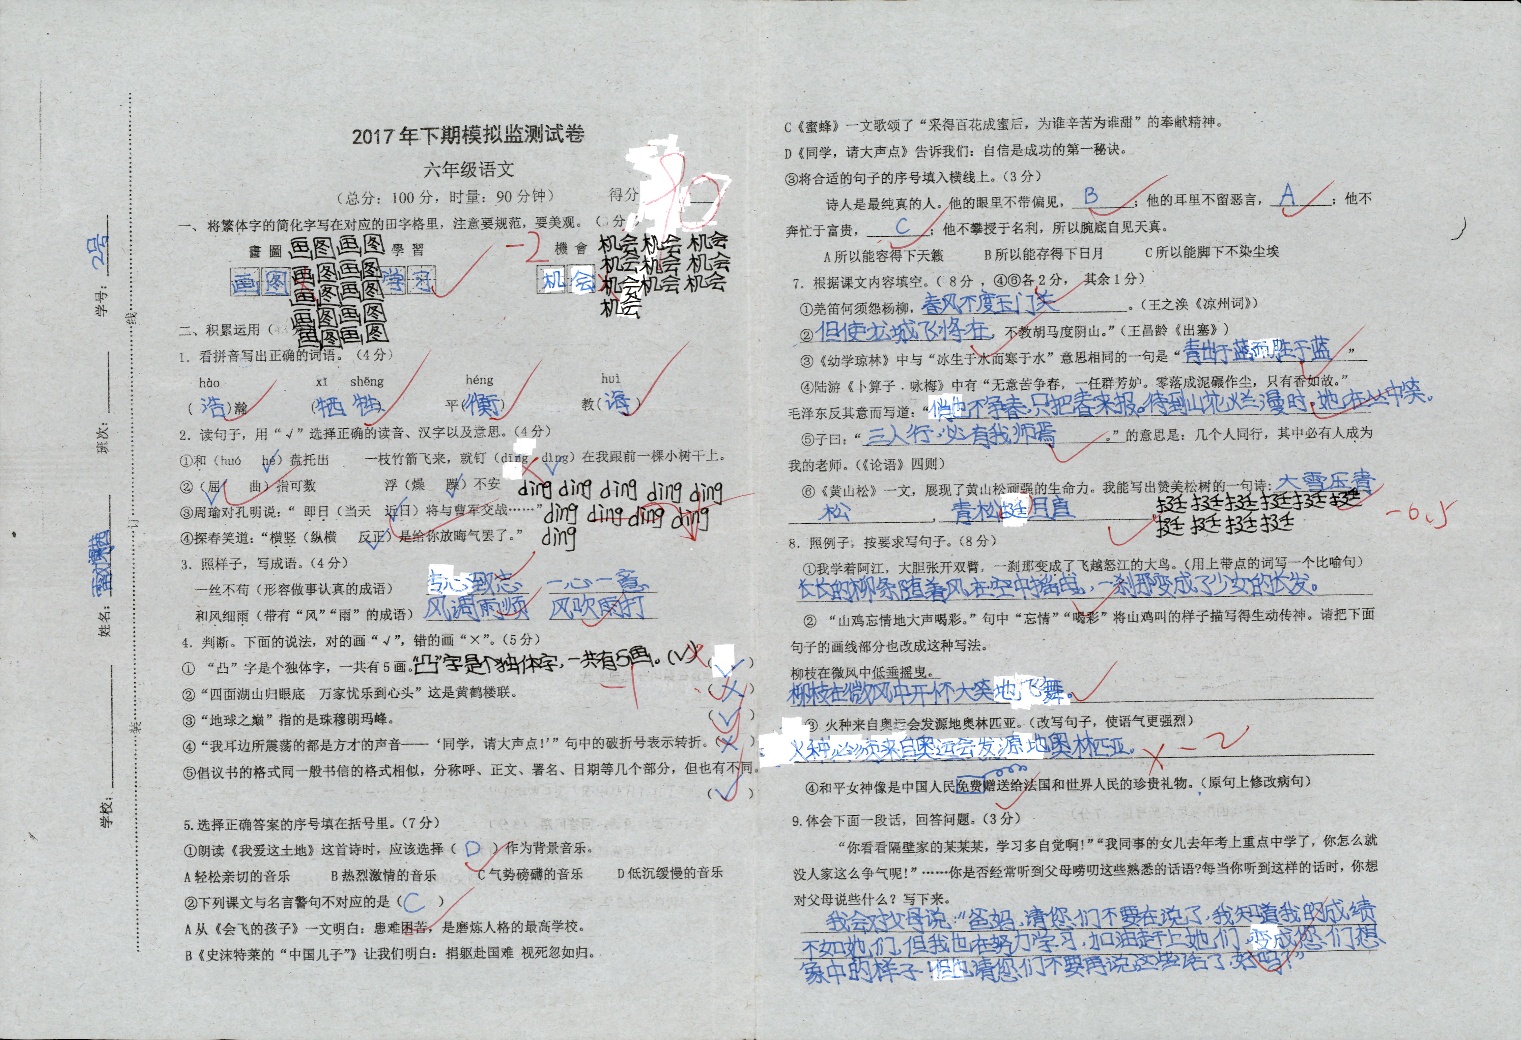 2017年下期模拟监测试卷
六年级语文
(总分：100分，时量：90分钟) 得分
一、将繁体字的简化字写在对应的田字格里，注意要规范，要美观。
畫 圖 學 習 機 會
画 图 学 习 机 会
画图画图
画图画图
画图画图
画图画图
画图画图
机会机会机会
机会机会机会
机会机会机会
机会
-2
二、积累运用
1．看拼音写出正确的词语。（4分）
hào xī shēng héng huì
（浩）瀚 （牺牲） 平（衡） 教（诲）
2．读句子，用“√”选择正确的读音、汉字以及意思。（4分）
①和（huó hé）盘托出 一枝竹箭飞来，就钉（dīng dìng）在我跟前一棵小树干上。
②（屈 曲）指可数 浮（燥 躁）不安
dìng dìng dìng dìng dìng
dìng dìng dìng dìng
dìng
③周瑜对孔明说：“即日（当天 近日）将与曹军交战……”
④探春笑道：“横竖（纵横 反正）是给你放晦气罢了。”
3．照样子，写成语。（4分）
一丝不苟（形容做事认真的成语） 专心致志 一心一意
和风细雨（带有“风”“雨”的成语） 风调雨顺 风吹雨打
4．判断。下面的说法，对的画“√”，错的画“×”。（5分）
① “凸”字是个独体字，一共有5画。“凸”字是个独体字，一共有5画。（√）（√）
-1
②“四面湖山归眼底 万家忧乐到心头”这是黄鹤楼联。（×）
③“地球之巅”指的是珠穆朗玛峰。（√）
④“我耳边所震荡的都是方才的声音——‘同学，请大声点！’”句中的破折号表示转折。（×）
⑤倡议书的格式同一般书信的格式相似，分称呼、正文、署名、日期等几个部分，但也有不同。
（√）
5.选择正确答案的序号填在括号里。（7分）
①朗读《我爱这土地》这首诗时，应该选择（ D ）作为背景音乐。
A轻松亲切的音乐 B热烈激情的音乐 C气势磅礴的音乐 D低沉缓慢的音乐
②下列课文与名言警句不对应的是（ C ）
A从《会飞的孩子》一文明白：患难困苦，是磨炼人格的最高学校。
B《史沫特莱的“中国儿子”》让我们明白：捐躯赴国难 视死忽如归。
学校： 姓名： 班次： 学号：2号
装 订 线
C《蜜蜂》一文歌颂了“采得百花成蜜后，为谁辛苦为谁甜”的奉献精神。
D《同学，请大声点》告诉我们：自信是成功的第一秘诀。
③将合适的句子的序号填入横线上。（3分）
诗人是最纯真的人。他的眼里不带偏见，B；他的耳里不留恶言，A；他不
奔忙于富贵，C；他不攀授于名利，所以腕底自见天真。
A所以能容得下天籁 B所以能存得下日月 C所以能脚下不染尘埃
7．根据课文内容填空。（8分，④⑥各2分，其余1分）
①羌笛何须怨杨柳，春风不度玉门关。（王之涣《凉州词》）
②但使龙城飞将在，不教胡马度阴山。”（王昌龄《出塞》）
③《幼学琼林》中与“冰生于水而寒于水”意思相同的一句是“青出于蓝而胜于蓝”
④陆游《卜算子．咏梅》中有“无意苦争春，一任群芳妒。零落成泥碾作尘，只有香如故。”
毛泽东反其意而写道：“俏也不争春，只把春来报。待到山花烂漫时，她在丛中笑。
⑤子曰：“三人行，必有我师焉。”的意思是：几个人同行，其中必有人成为
我的老师。（《论语》四则）
⑥《黄山松》一文，展现了黄山松顽强的生命力。我能写出赞美松树的一句诗：大雪压青
松，青松挺且直
挺挺挺挺挺挺
挺挺挺挺
-0.5
8．照例子，按要求写句子。（8分）
①我学着阿江，大胆张开双臂，一刹那变成了飞越怒江的大鸟。（用上带点的词写一个比喻句）
长长的柳条随着风在空中摇曳，一刹那变成了少女的长发。
② “山鸡忘情地大声喝彩。”句中“忘情”“喝彩”将山鸡叫的样子描写得生动传神。请把下面
句子的画线部分也改成这种写法。
柳枝在微风中低垂摇曳。
柳枝在微风中开怀大笑地飞舞。
③ 火种来自奥运会发源地奥林匹亚。（改写句子，使语气更强烈）
火种必须来自奥运会发源地奥林匹亚。 × -2
④和平女神像是中国人民免费赠送给法国和世界人民的珍贵礼物。（原句上修改病句）
9.体会下面一段话，回答问题。（3分）
“你看看隔壁家的某某某，学习多自觉啊！”“我同事的女儿去年考上重点中学了，你怎么就
没人家这么争气呢！”……你是否经常听到父母唠叨这些熟悉的话语？每当你听到这样的话时，你想
对父母说些什么？写下来。
我会对父母说：“爸妈，请您们不要在说了，我知道我的成绩
不如她们，但我也在努力学习，加油赶上她们，变成您们想
象中的样子！但也请您们不要再说这些话了，好吗？”